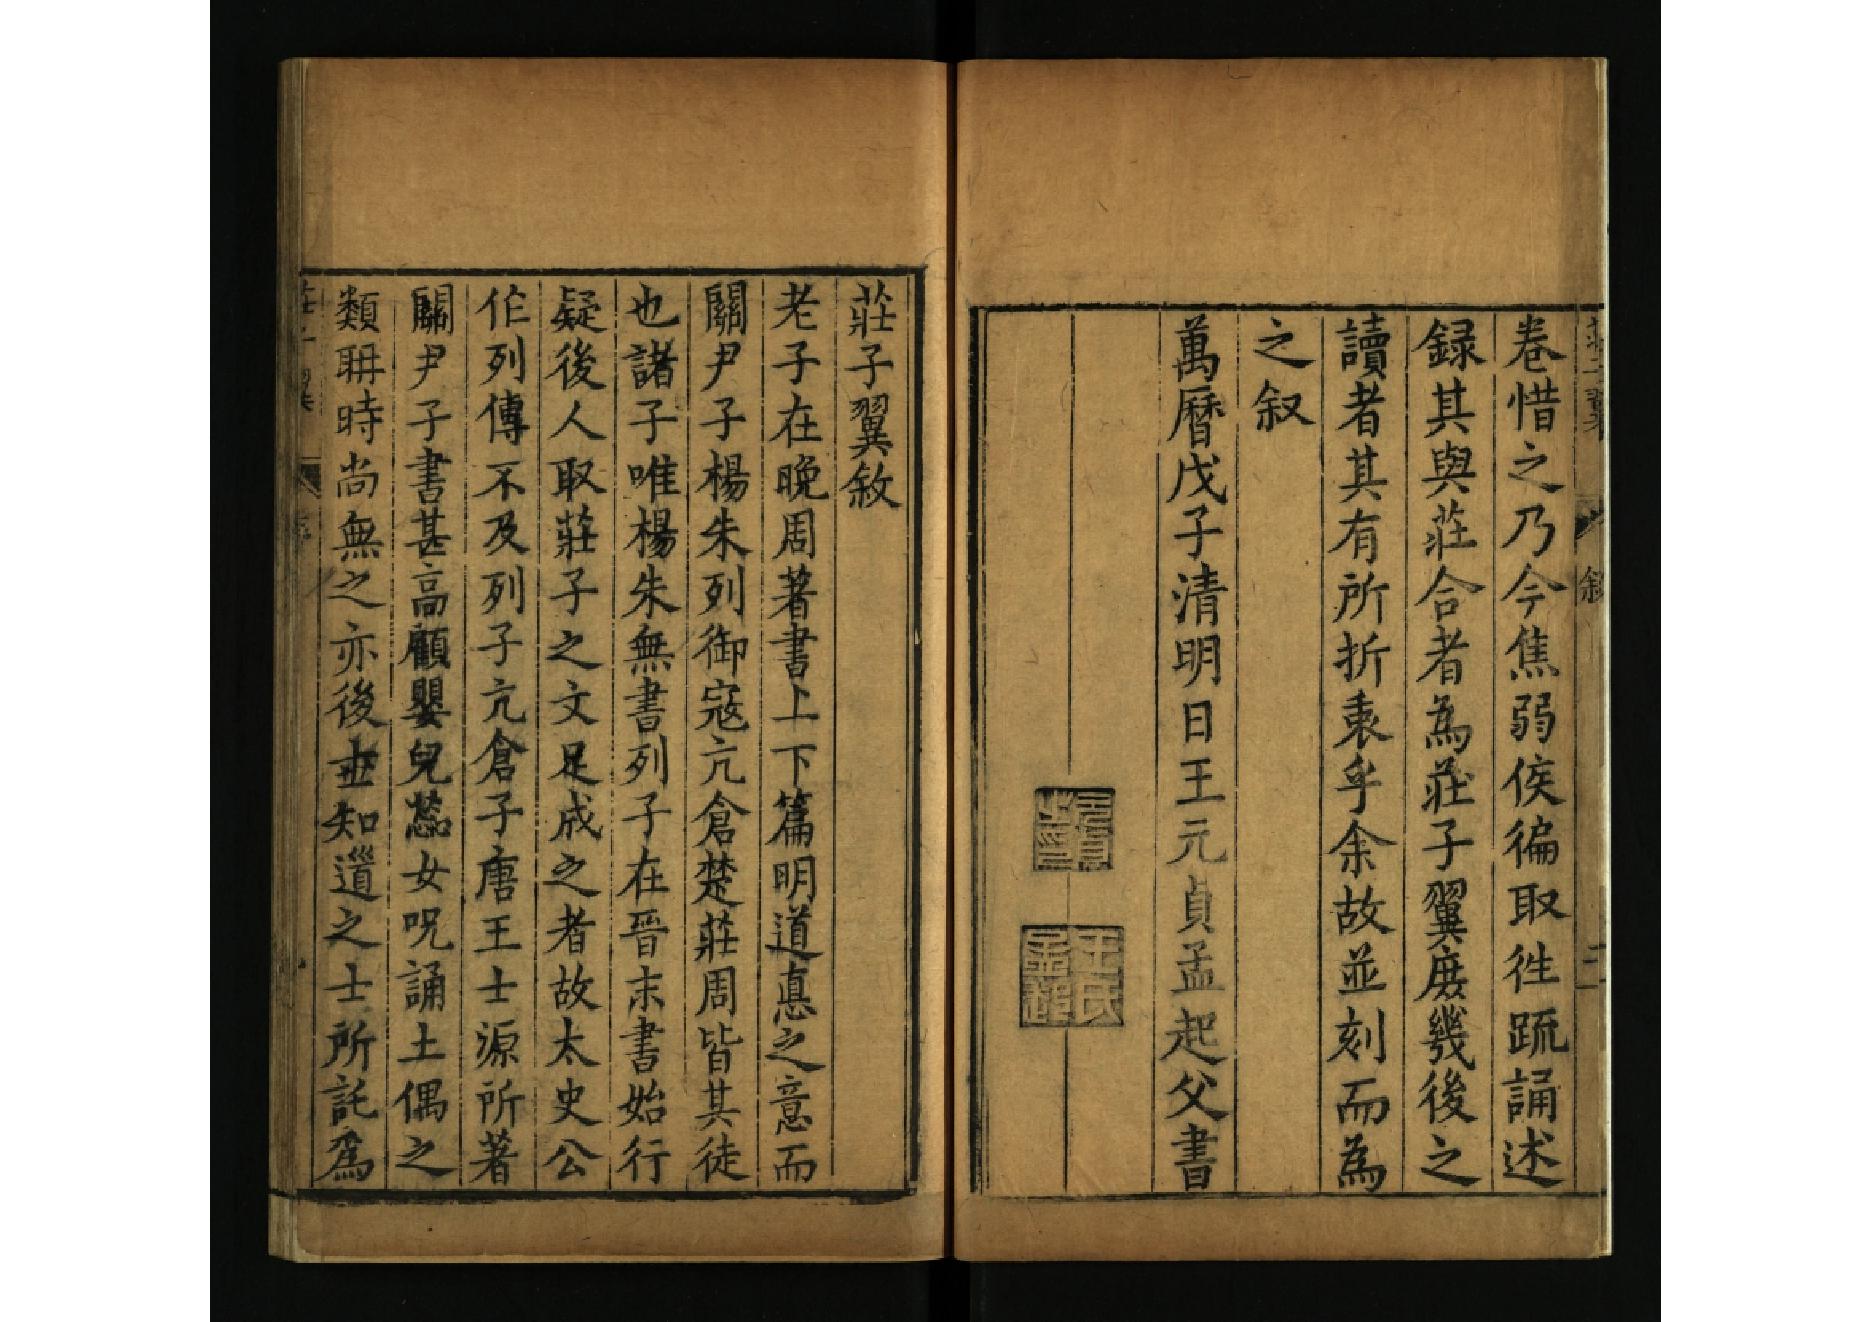 卷惜之乃今焦弱侯徧取徃疏誦述
録其與莊合者為莊子翼庶幾後之
讀者其有所折衷乎余故並刻而為
之叙
萬曆戊子清明日王元貞孟起父書
王元貞印
王氏孟起
莊子翼敘
老子在晚周著書上下篇明道悳之意而
關尹子楊朱列御寇亢倉楚莊周皆其徒
也諸子唯楊朱無書列子在晉末書始行
疑後人取莊子之文足成之者故太史公
作列傳不及列子亢倉子唐王士源所著
關尹子書甚高顧嬰兒蕊女呪誦土偶之
類聃時尚無之亦後世知道之士所託為